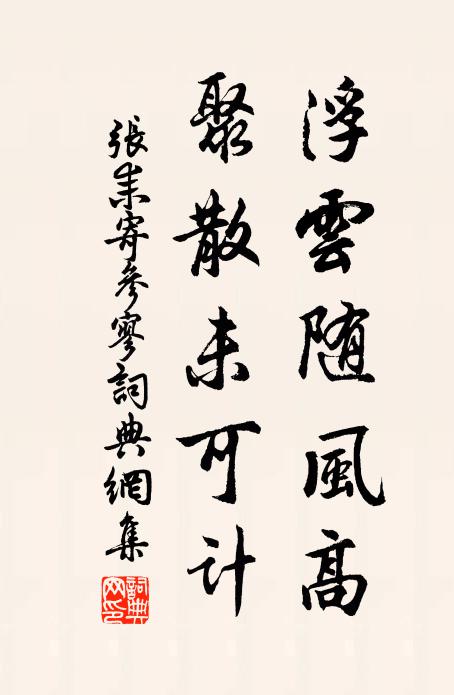 浮雲随風高
聚散未可计
張耒寄參寥詞典網集
詞典网印